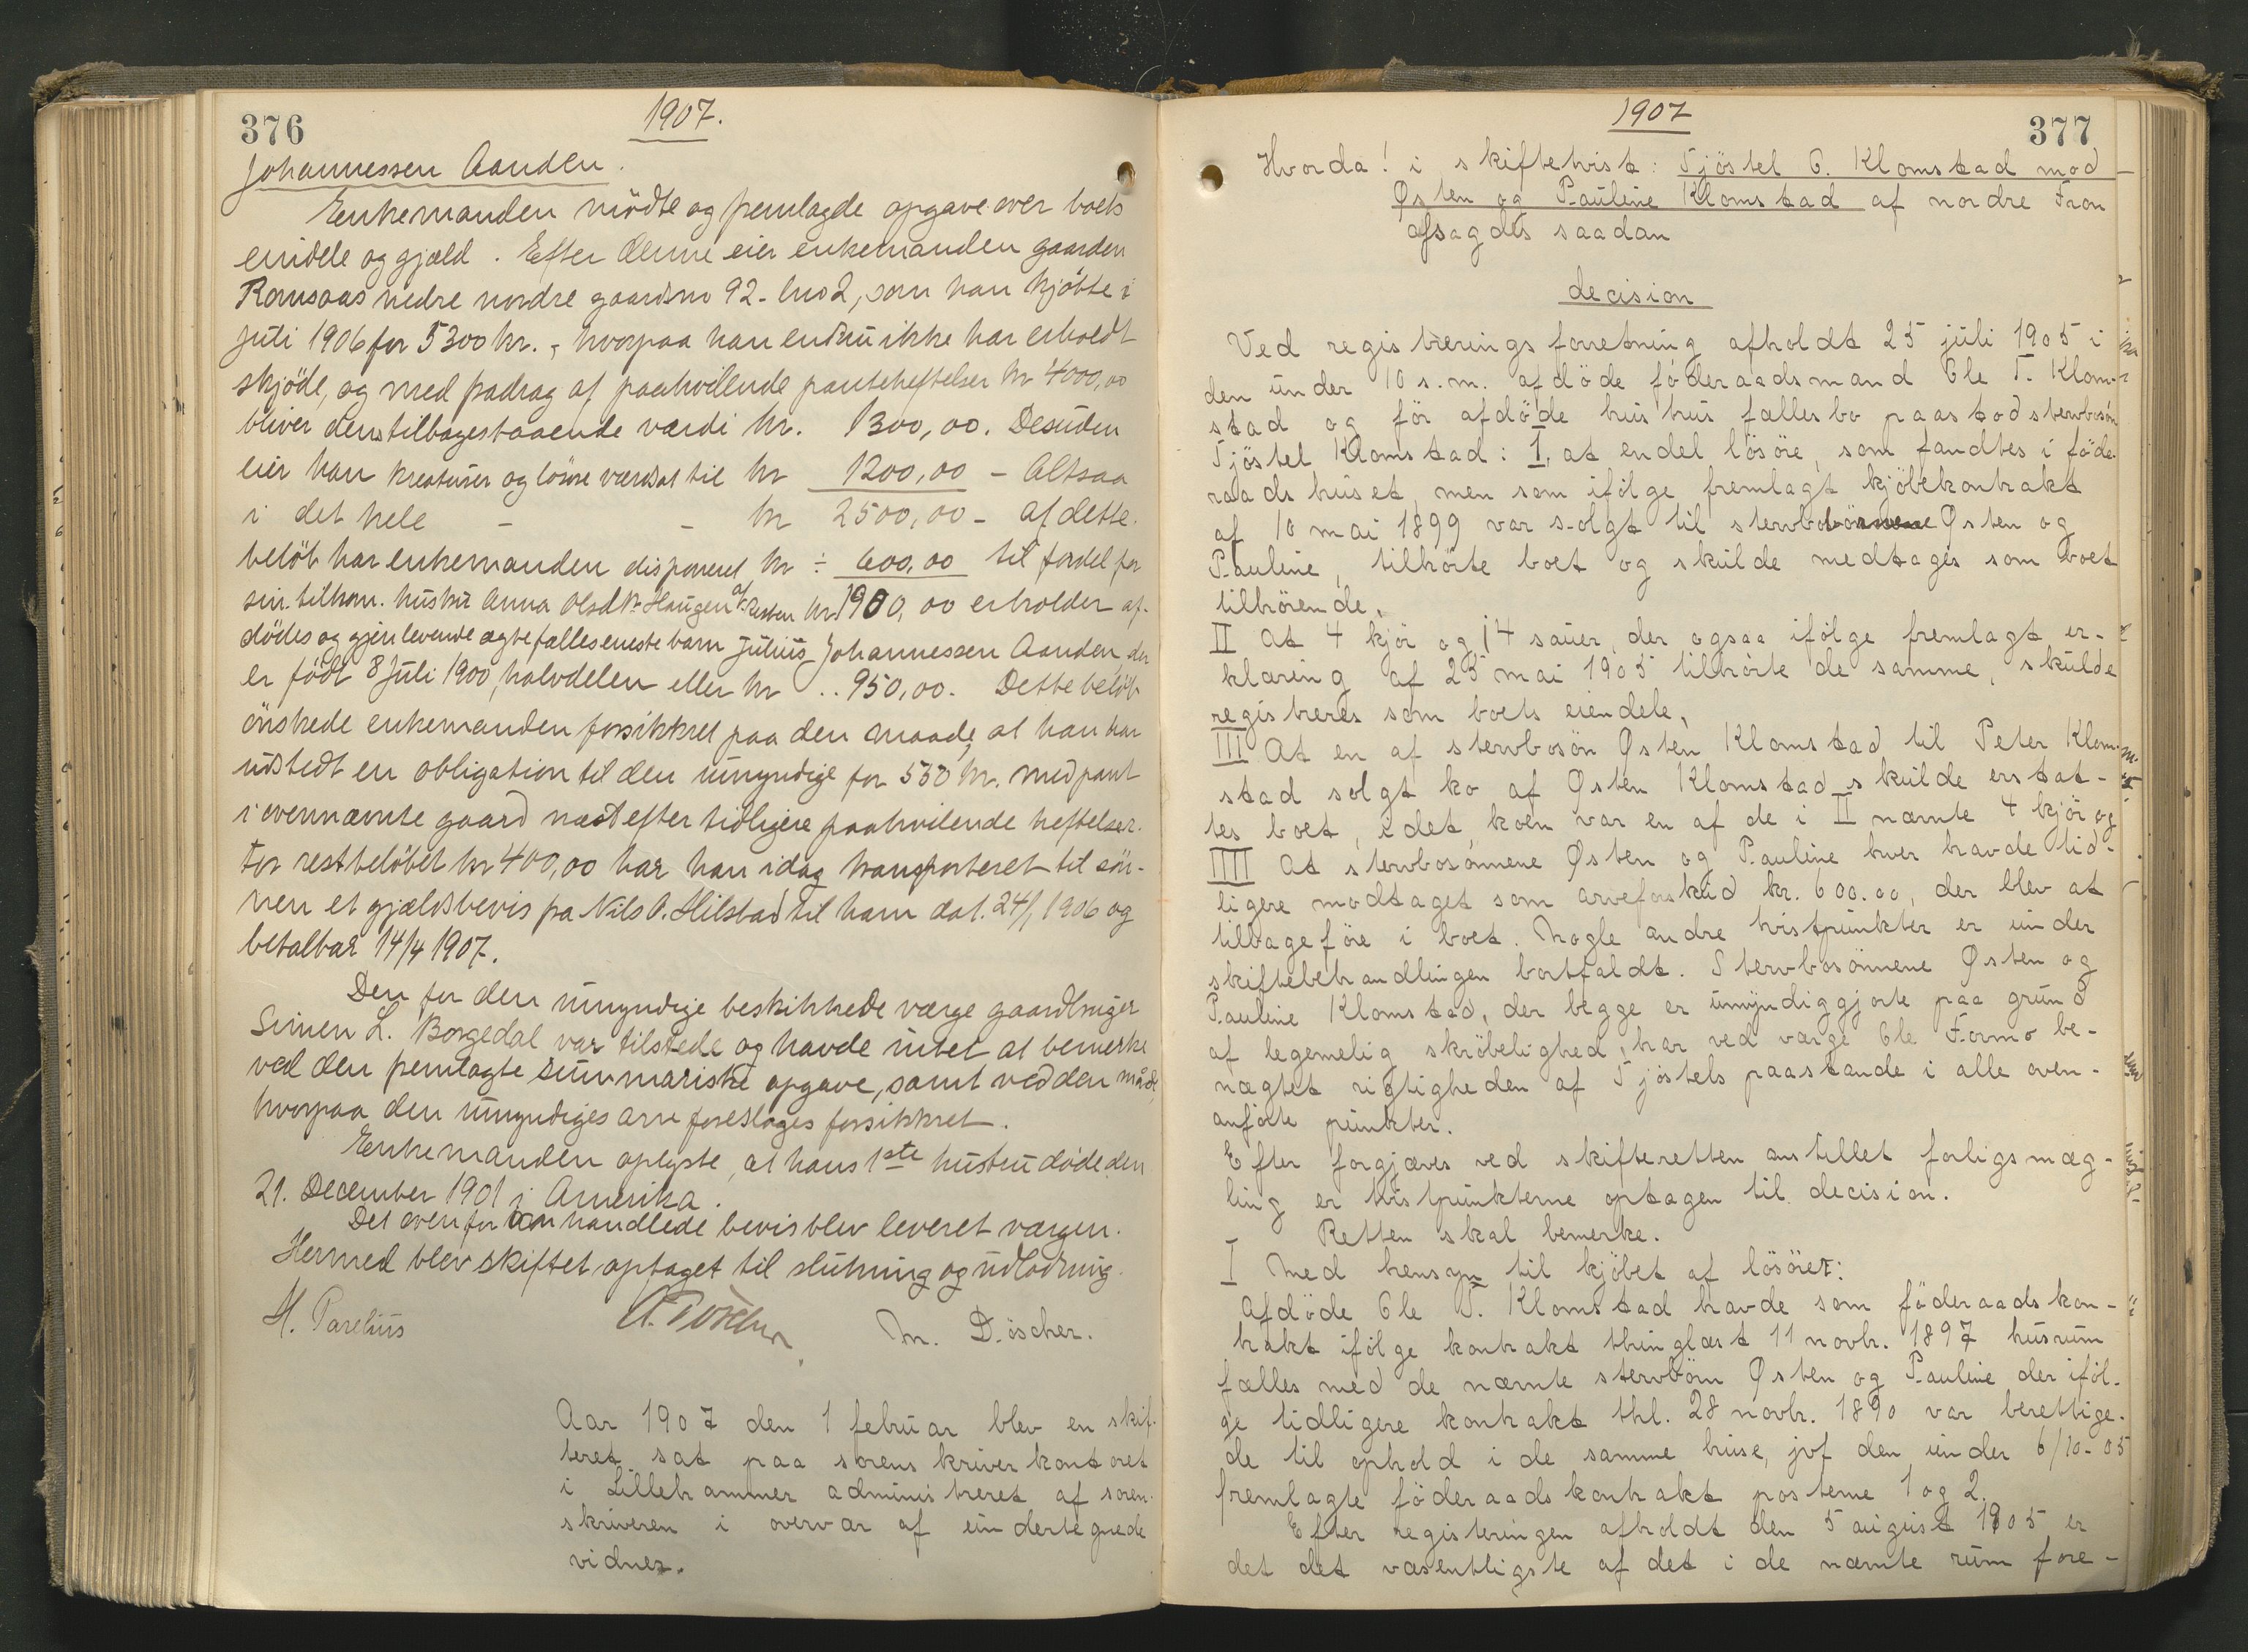 376
1907.
Johannessen Aanden.
Enkemanden mödte og fremlagde opgave over boets
eiendele og gjæld. Efter denne eier enkemanden gaarden
Romsaas nedre nordre gaardsno 92. bno 2, som han kjöbte i
juli 1906 for 5300 kr., hvorpaa han endnu ikke har erholdt
skjöde, og med fradrag af paahvilende panteheftelser kr 4000,00
bliver dens tilbagestaaende værdi kr. 1300,00. Desuden
eier han kreaturer og lösöre værdsat til kr 1200,00 - Altsaa
i det hele - - kr 2500,00 - af dette
belöb har enkemanden disponeret kr ÷ 600,00 til fordel for
sin tilkom. hustru Anna Olsd. Haugen af Resten kr 1900,00 erholder af-
dödes og gjenlevende ægtefælles eneste barn Julius Johannessen Aanden der
er födt 8 Juli 1900, halvdelen eller kr .. 950,00. Dette belöb
önskede enkemanden forsikkret paa den maade, at han har
udstedt en obligation til den umyndige for 550 kr. med pant
i ovennævnte gaard næst efter tidligere paahvilende heftelser.
For restbelöbet kr 400,00 har han idag transporteret til sön-
nen et gjældsbevis fra Nils O. Hilstad til ham dat. 24/1 1906 og
betalbar 14/4 1907.
Den for den umyndige beskikkede værge gaardbruger
Simen L. Borgedal var tilstede og havde intet at bemerke
ved den fremlagte summariske opgave, samt ved den måde,
hvorpaa den umyndiges arv foreslages forsikkret.
Enkemanden oplyste, at hans 1ste hustru döde den
21. December 1901 i Amerika.
Det ovenfor omhandlede bevis blev leveret værgen.
Hermed blev skiftet optaget til slutning og udlodning.
H. Parelius
M. Döscher.
Aar 1907 den 1 februar blev en skif-
teret sat paa sorenskriverkontoret
i Lillehammer administreret af soren-
skriveren i overvær af undertegnede
vidner.
1907
377
Hvorda! i skiftetvist: Tjöstel O. Klomstad mod
Østen og Pauline Klomstad af nordre Fron
afsagdes saadan
decision
Ved registreringsforretning afholdt 25 juli 1905 i
den under 10 s.m. afdöde föderaadsmand Ole T. Klom-
stad og för afdöde hustrus fællesbo paastod stervbosön
Tjöstel Klomstad: I, at endel lösöre, som fandtes i föde-
raadshuset, men som ifölge fremlagt kjöbekontrakt
af 10 mai 1899 var solgt til stervbobörnene Østen og
Pauline, tilhörte boet og skulde medtages som boet
tilhörende,
II At 4 kjör og 14 sauer, der ogsaa ifölge fremlagt er-
klæring af 25 mai 1905 tilhörte de samme, skulde
registreres som boets eiendele,
III At en af stervbosön Østen Klomstad til Peter Klom-
stad solgt ko af Østen Klomstad skulde erstat-
tes boet, idet koen var en af de i II nævnte 4 kjör og
IIII At stervbosönnene Østen og Pauline hver havde tid-
ligere modtaget som arveforskud kr. 600.00, der blev at
tilbageföre i boet. Nogle andre tvistpunkter er under
skiftebehandlingen bortfaldt. Stervbosönnene Østen og
Pauline Klomstad, der begge er umyndiggjorte paa grund
af legemelig skröbelighed, har ved værge Ole Formo be-
nægtet rigtigheden af Tjöstels paastande i alle oven-
anförte punkter.
Efter forgjæves ved skifteretten anstillet forligsmæg-
ling er tvistpunkterne optagen til decision.
Retten skal bemerke.
I Med hensyn til kjöbet af lösöret:
Afdöde Ole T. Klomstad havde som föderaadskon-
trakt ifölge kontrakt thinglæst 11 novbr. 1897 husrum
fælles med de nævnte stervbörn Østen og Pauline der iföl-
ge tidligere kontrakt thl. 28 novbr. 1890 var berettige-
de til ophold i de samme huse, jvf den under 6/10-05
fremlagte föderaadskontrakt posterne 1 og 2.
Efter registeringen afholdt den 5 august 1905 er
det det væsentligste af det i de nævnte rum fore-